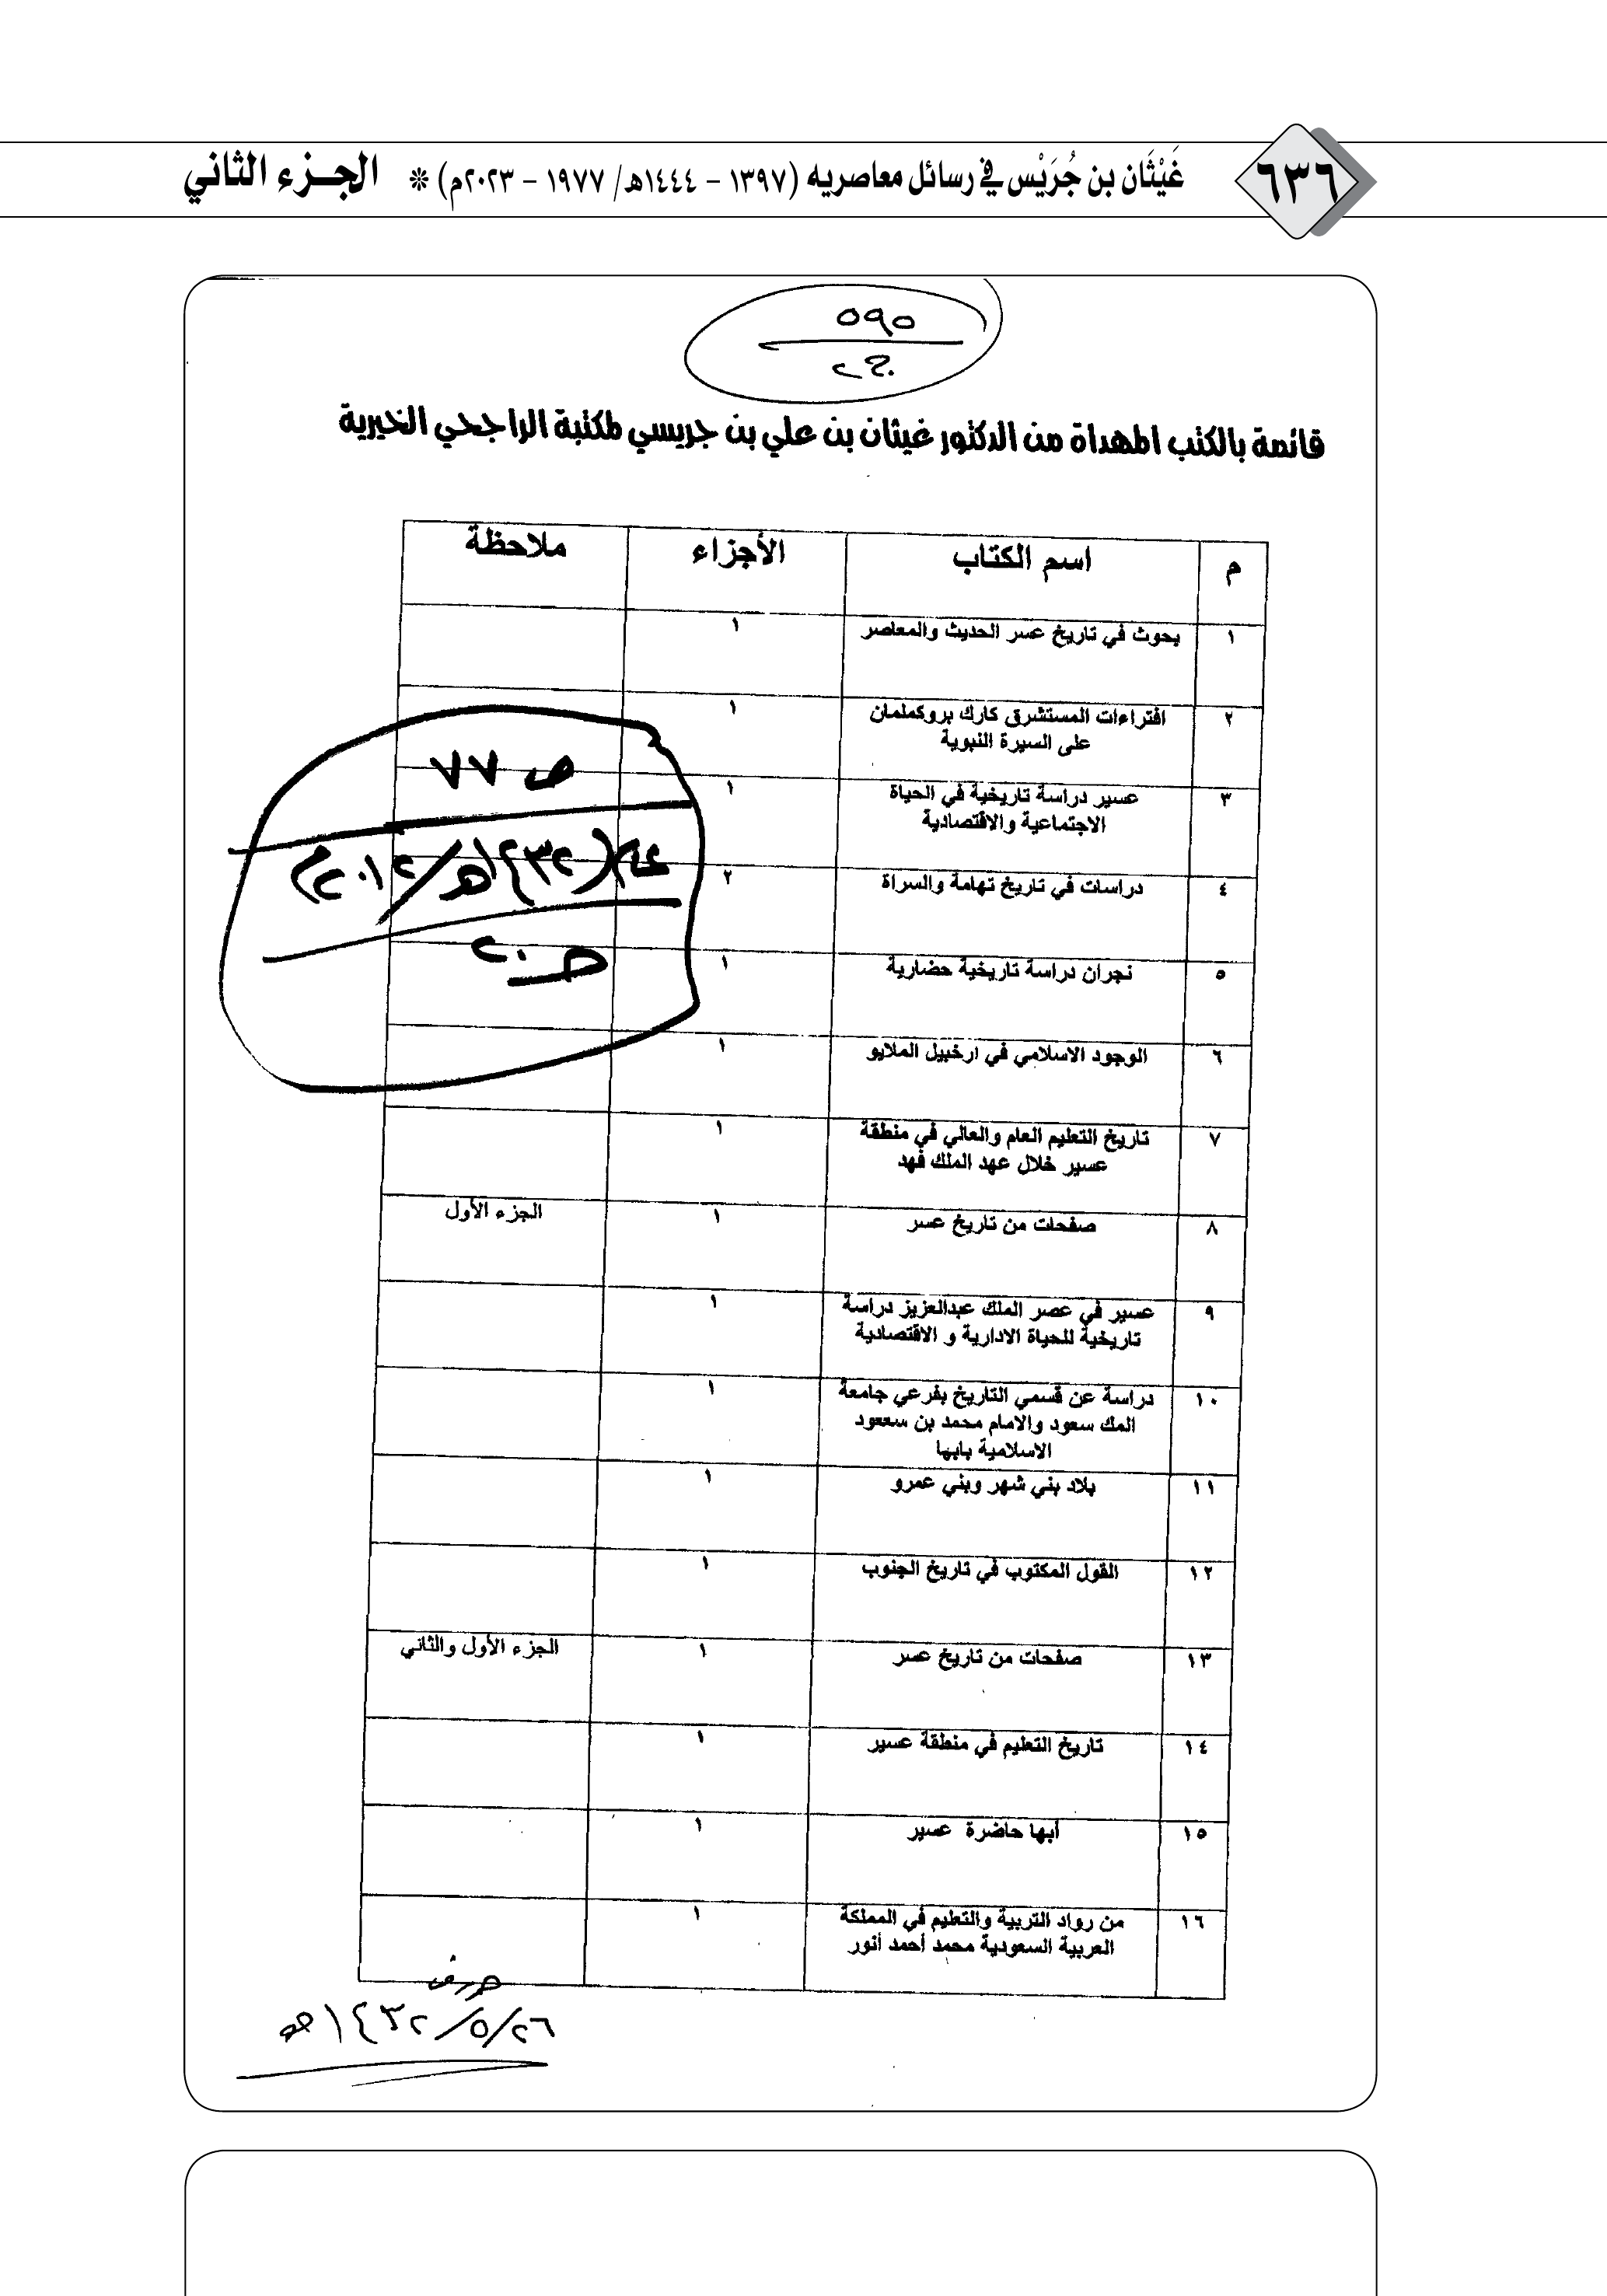 ٦٣٦
غَيْثَان بن جُرَيْس في رسائل معاصريه (١٣٩٧ - ١٤٤٤هـ/ ١٩٧٧ - ٢٠٢٣م) * الجزء الثاني
٥٩٥
ج٢
قائمة بالكتب المهداة من الدكتور غيثان بن علي بن جريسي لمكتبة الراجحي الخيرية
م اسم الكتاب الأجزاء ملاحظة
١ بحوث في تاريخ عسر الحديث والمعاصر ١
٢ افتراءات المستشرق كارك بروكملمان ١
على السيرة النبوية
٣ عسير دراسة تاريخية في الحياة ١
الاجتماعية والاقتصادية
٤ دراسات في تاريخ تهامة والسراة ٢
٥ نجران دراسة تاريخية حضارية ١
٦ الوجود الاسلامي في ارخبيل الملايو ١
٧ تاريخ التعليم العام والعالي في منطقة ١
عسير خلال عهد الملك فهد
٨ صفحات من تاريخ عسر ١ الجزء الأول
٩ عسير في عصر الملك عبدالعزيز دراسة ١
تاريخية للحياة الادارية و الاقتصادية
١٠ دراسة عن قسمي التاريخ بفرعي جامعة ١
المك سعود والامام محمد بن سععود
الاسلامية بابها
١١ بلاد بني شهر وبني عمرو ١
١٢ القول المكتوب في تاريخ الجنوب ١
١٣ صفحات من تاريخ عسر ١ الجزء الأول والثاني
١٤ تاريخ التعليم في منطقة عسير ١
١٥ أبها حاضرة عسير ١
١٦ من رواد التربية والتعليم في المملكة ١
العربية السعودية محمد أحمد أنور
ص ٧٧
عام (١٤٣٢هـ/٢٠١٢م
حـ ٢٠
٢٦/٥/١٤٣٢هـ